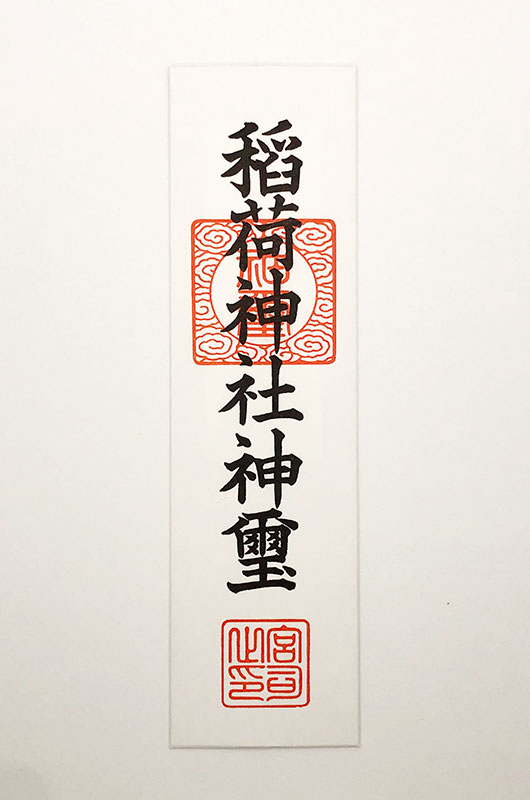 稲荷神社神璽
宮司之印